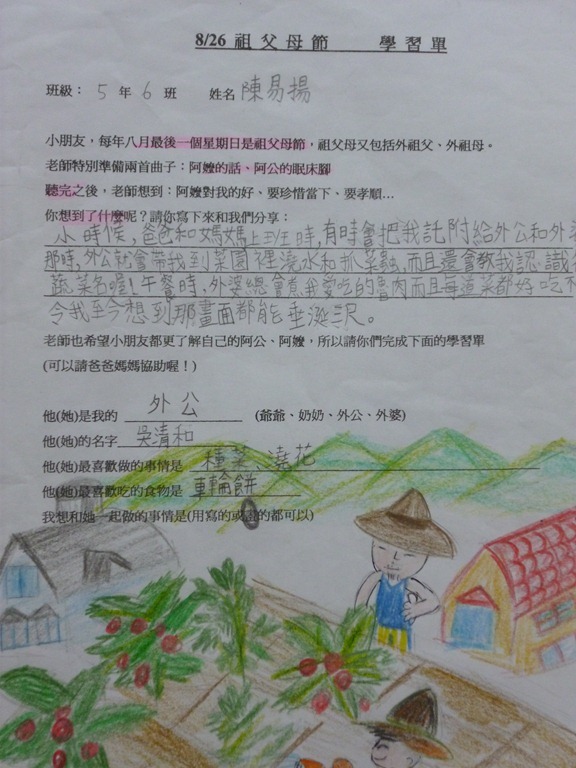 8/26 祖父母節 學習單
班級： 5 年 6 班 姓名 陳易揚
小朋友，每年八月最後一個星期日是祖父母節，祖父母又包括外祖父、外祖母。
老師特別準備兩首曲子：阿嬤的話、阿公的眠床腳
聽完之後，老師想到：阿嬤對我的好、要珍惜當下、要孝順…
你想到了什麼呢？請你寫下來和我們分享：
小時候，爸爸和媽媽上班時，有時會把我託附給外公和外婆
那時，外公就會帶我到菜園裡澆水和抓菜蟲，而且還會教我認識
蔬菜名喔！午餐時，外婆總會煮我愛吃的魯肉而且每道菜都好吃
令我至今想到那畫面都能垂涎三尺。
老師也希望小朋友都更了解自己的阿公、阿嬤，所以請你們完成下面的學習單
(可以請爸爸媽媽協助喔！)
他(她)是我的 外公 (爺爺、奶奶、外公、外婆)
他(她)的名字 吳清和
他(她)最喜歡做的事情是 種菜、澆花
他(她)最喜歡吃的食物是 車輪餅
我想和她一起做的事情是(用寫的或畫的都可以)